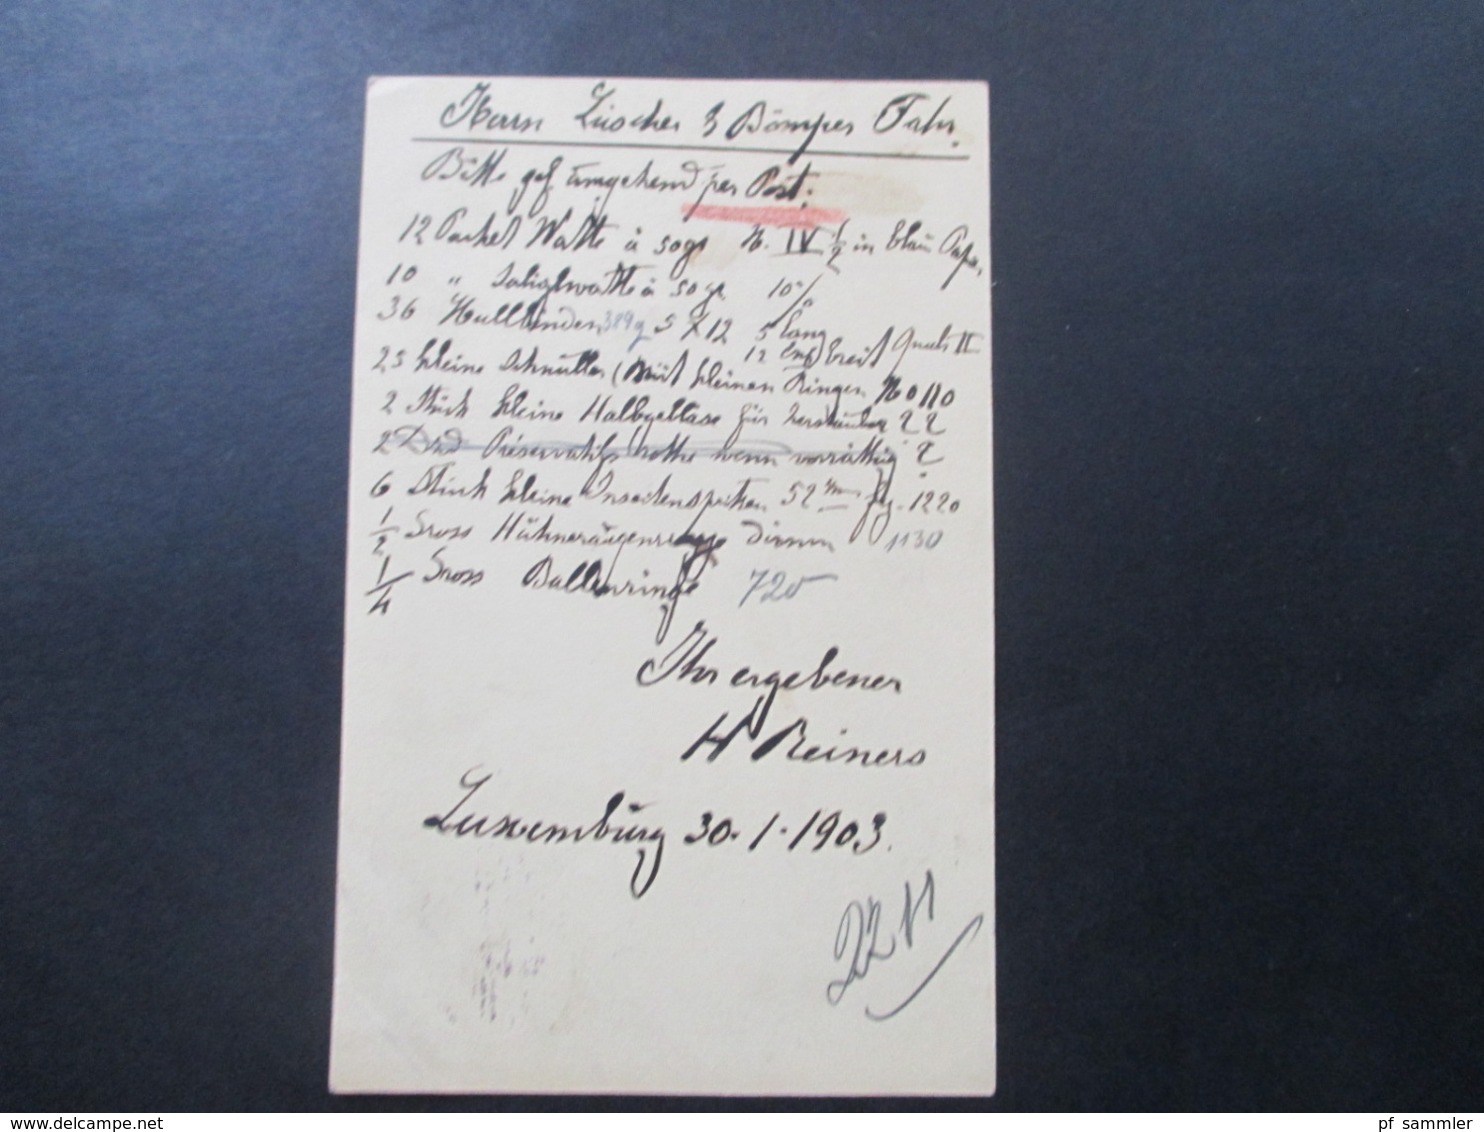 Herrn Lüscher & Bömper Fahr.
Bitte gef umgehend per Post:
12 Packet Watte à 50gr N. IV ½ in blau Papier
10 " Salicylwatte à 50 gr 10%
36 Mullbinden 389g 5 X 12 5 lang
12 cm breit Qual. II
25 kleine Schnuller (Mit kleinen Ringen No 110
2 Stück kleine Halbgebläse für Zerstäuber ? ?
2 Dzd Préservatifs rothe wenn vorräthig ?
6 Stück kleine Insectenspritzen 52 fig. 1220
½ Gross Hühneraugenringe dünn 1130
¼ Gross Ballenringe 720
Ihr ergebener
H Reiners
Luxemburg 30.1.1903.
pf sammler